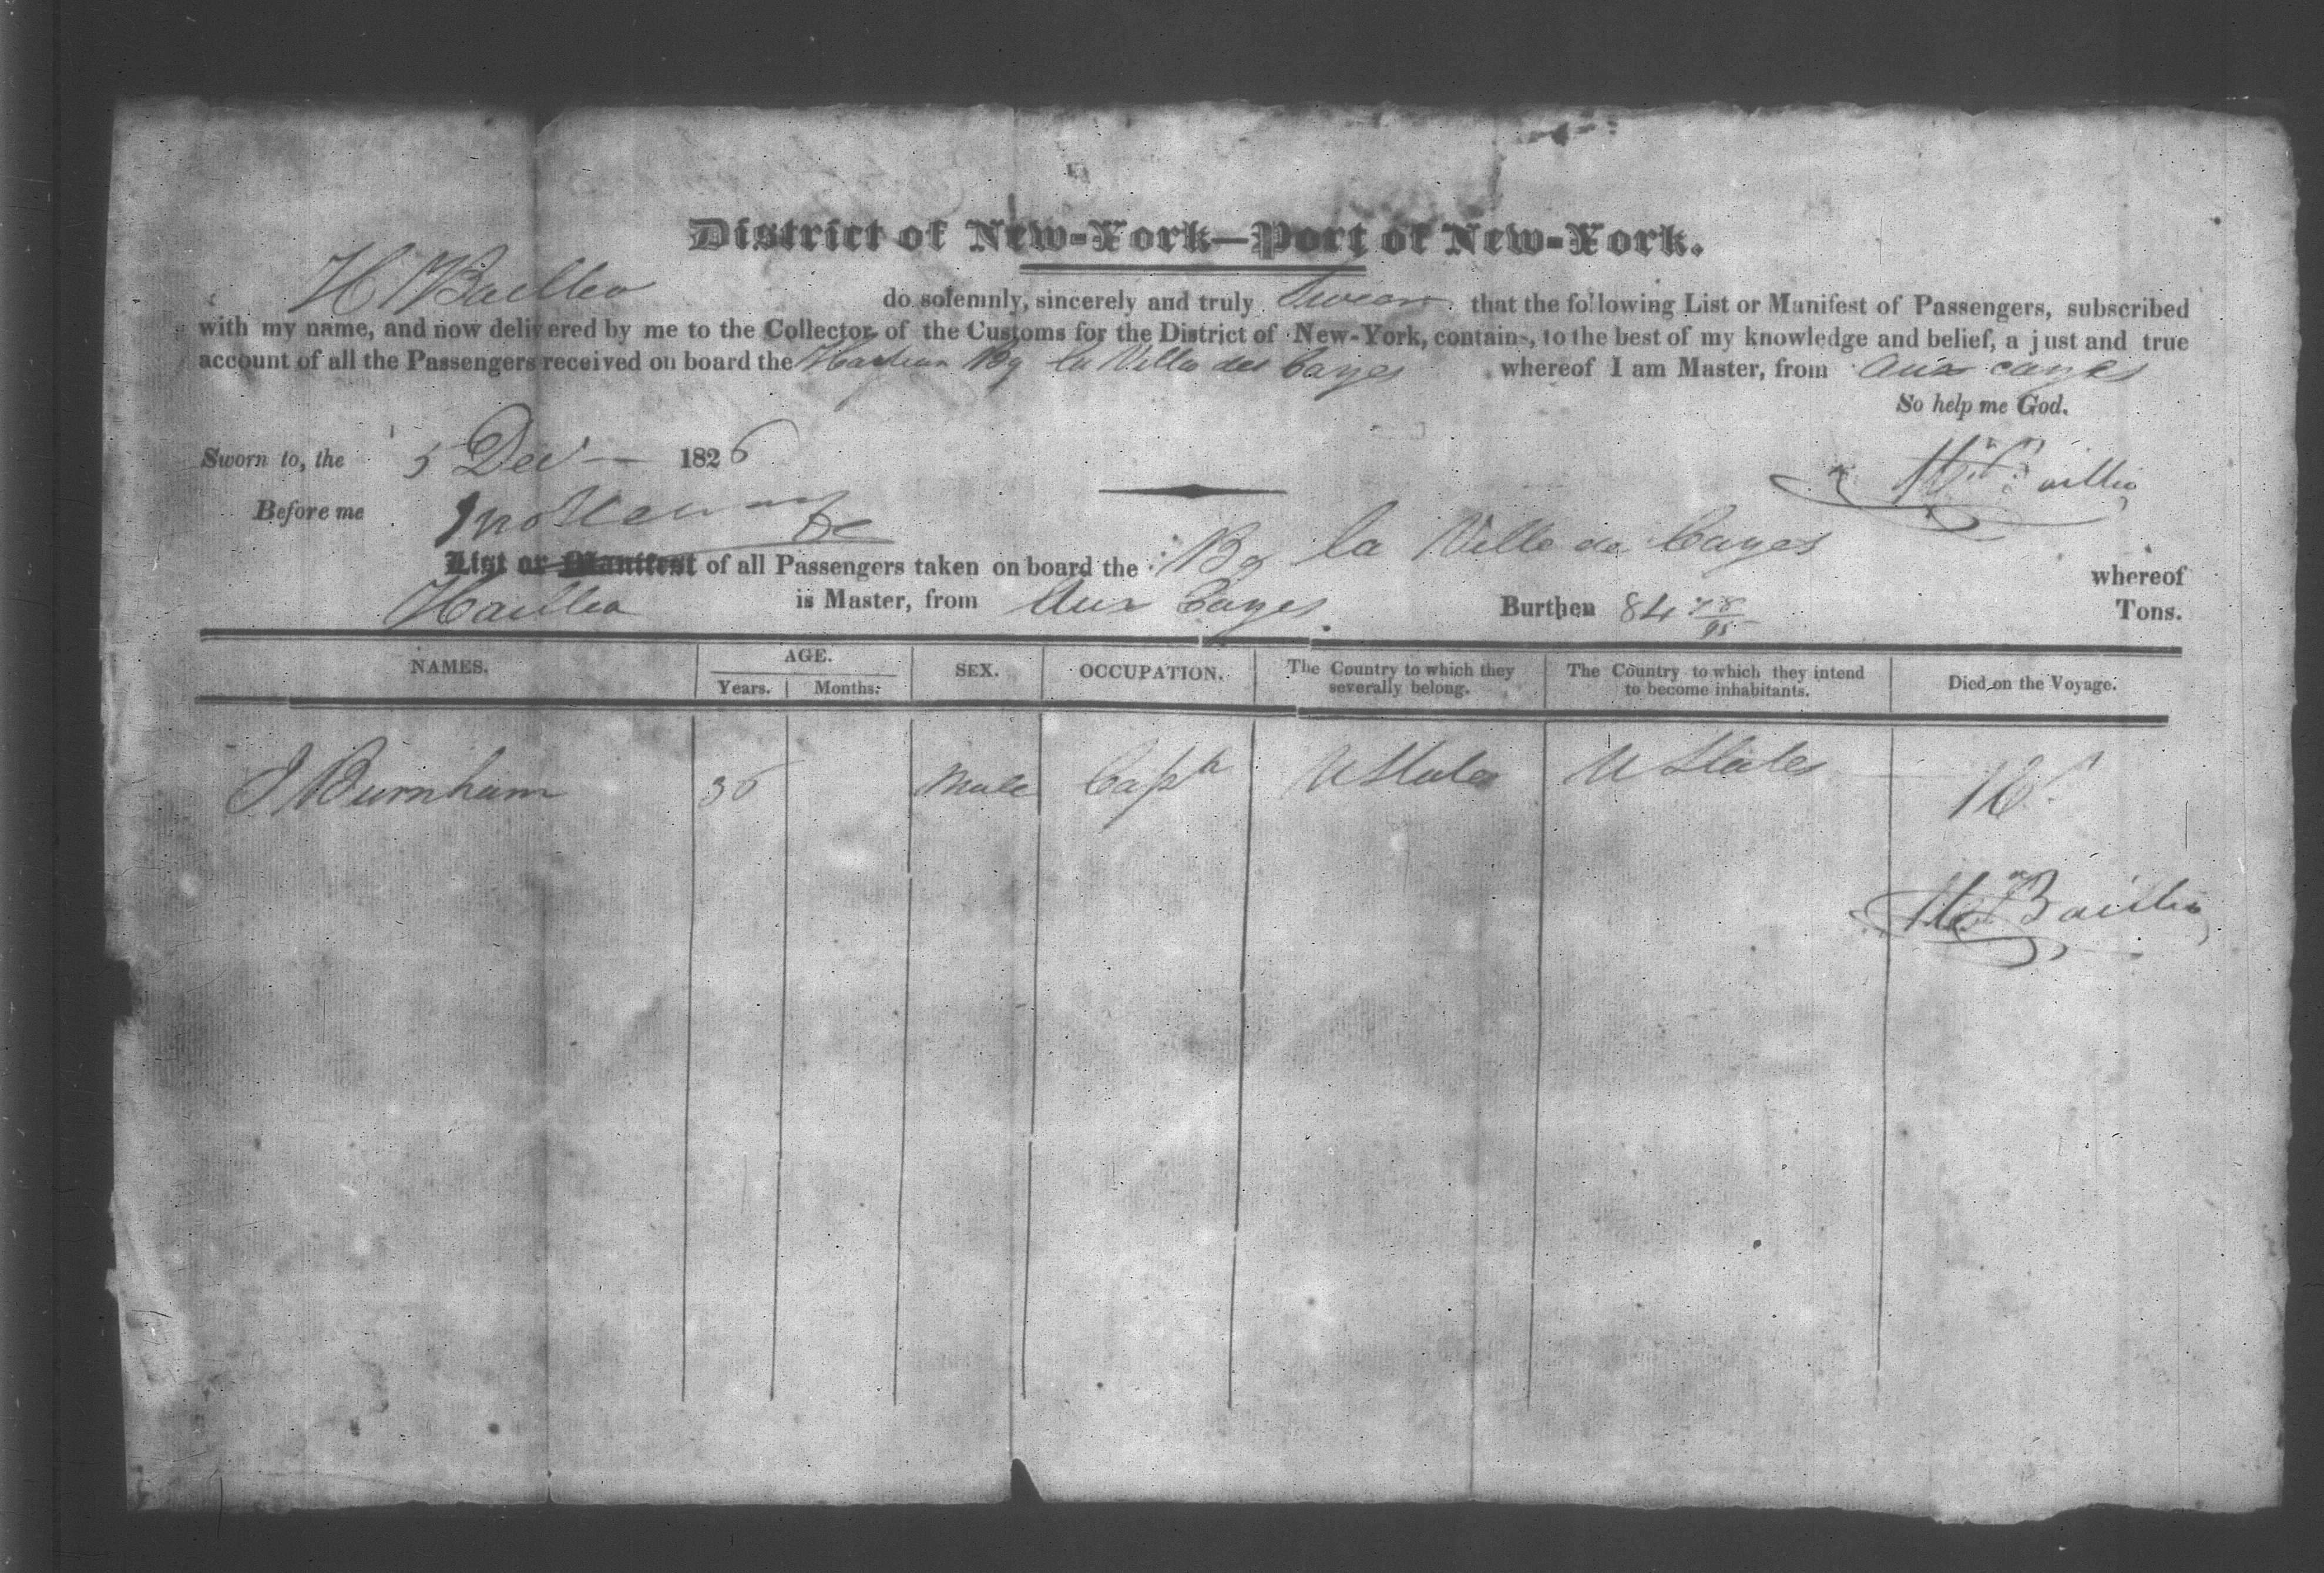 District of New-York—Port of New-York.
H Baillio do solemnly, sincerely and truly Swear that the following List or Manifest of Passengers, subscribed
with my name, and now delivered by me to the Collector of the Customs for the District of New-York, contains, to the best of my knowledge and belief, a just and true
account of all the Passengers received on board the Haytian Bg la Ville des Cayes whereof I am Master, from Aux cayes
So help me God.
Sworn to, the 5 Dec 1826
H Baillio
Before me
List or Manifest of all Passengers taken on board the Bg la Ville de Cayes whereof
is Master, from Aux Cayes Burthen 84 78/95 Tons.
NAMES. AGE. Years. Months. SEX. OCCUPATION. The Country to which they severally belong. The Country to which they intend to become inhabitants. Died on the Voyage.
J Burnham 36 Male Capt U States U States
H Baillio